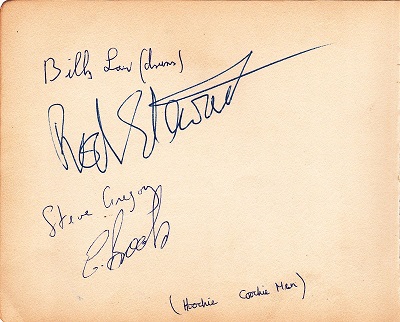 Billy Law (drums)
Rod Stewart
Steve Gregory
E. Brooks
(Hoochie Coochie Men)